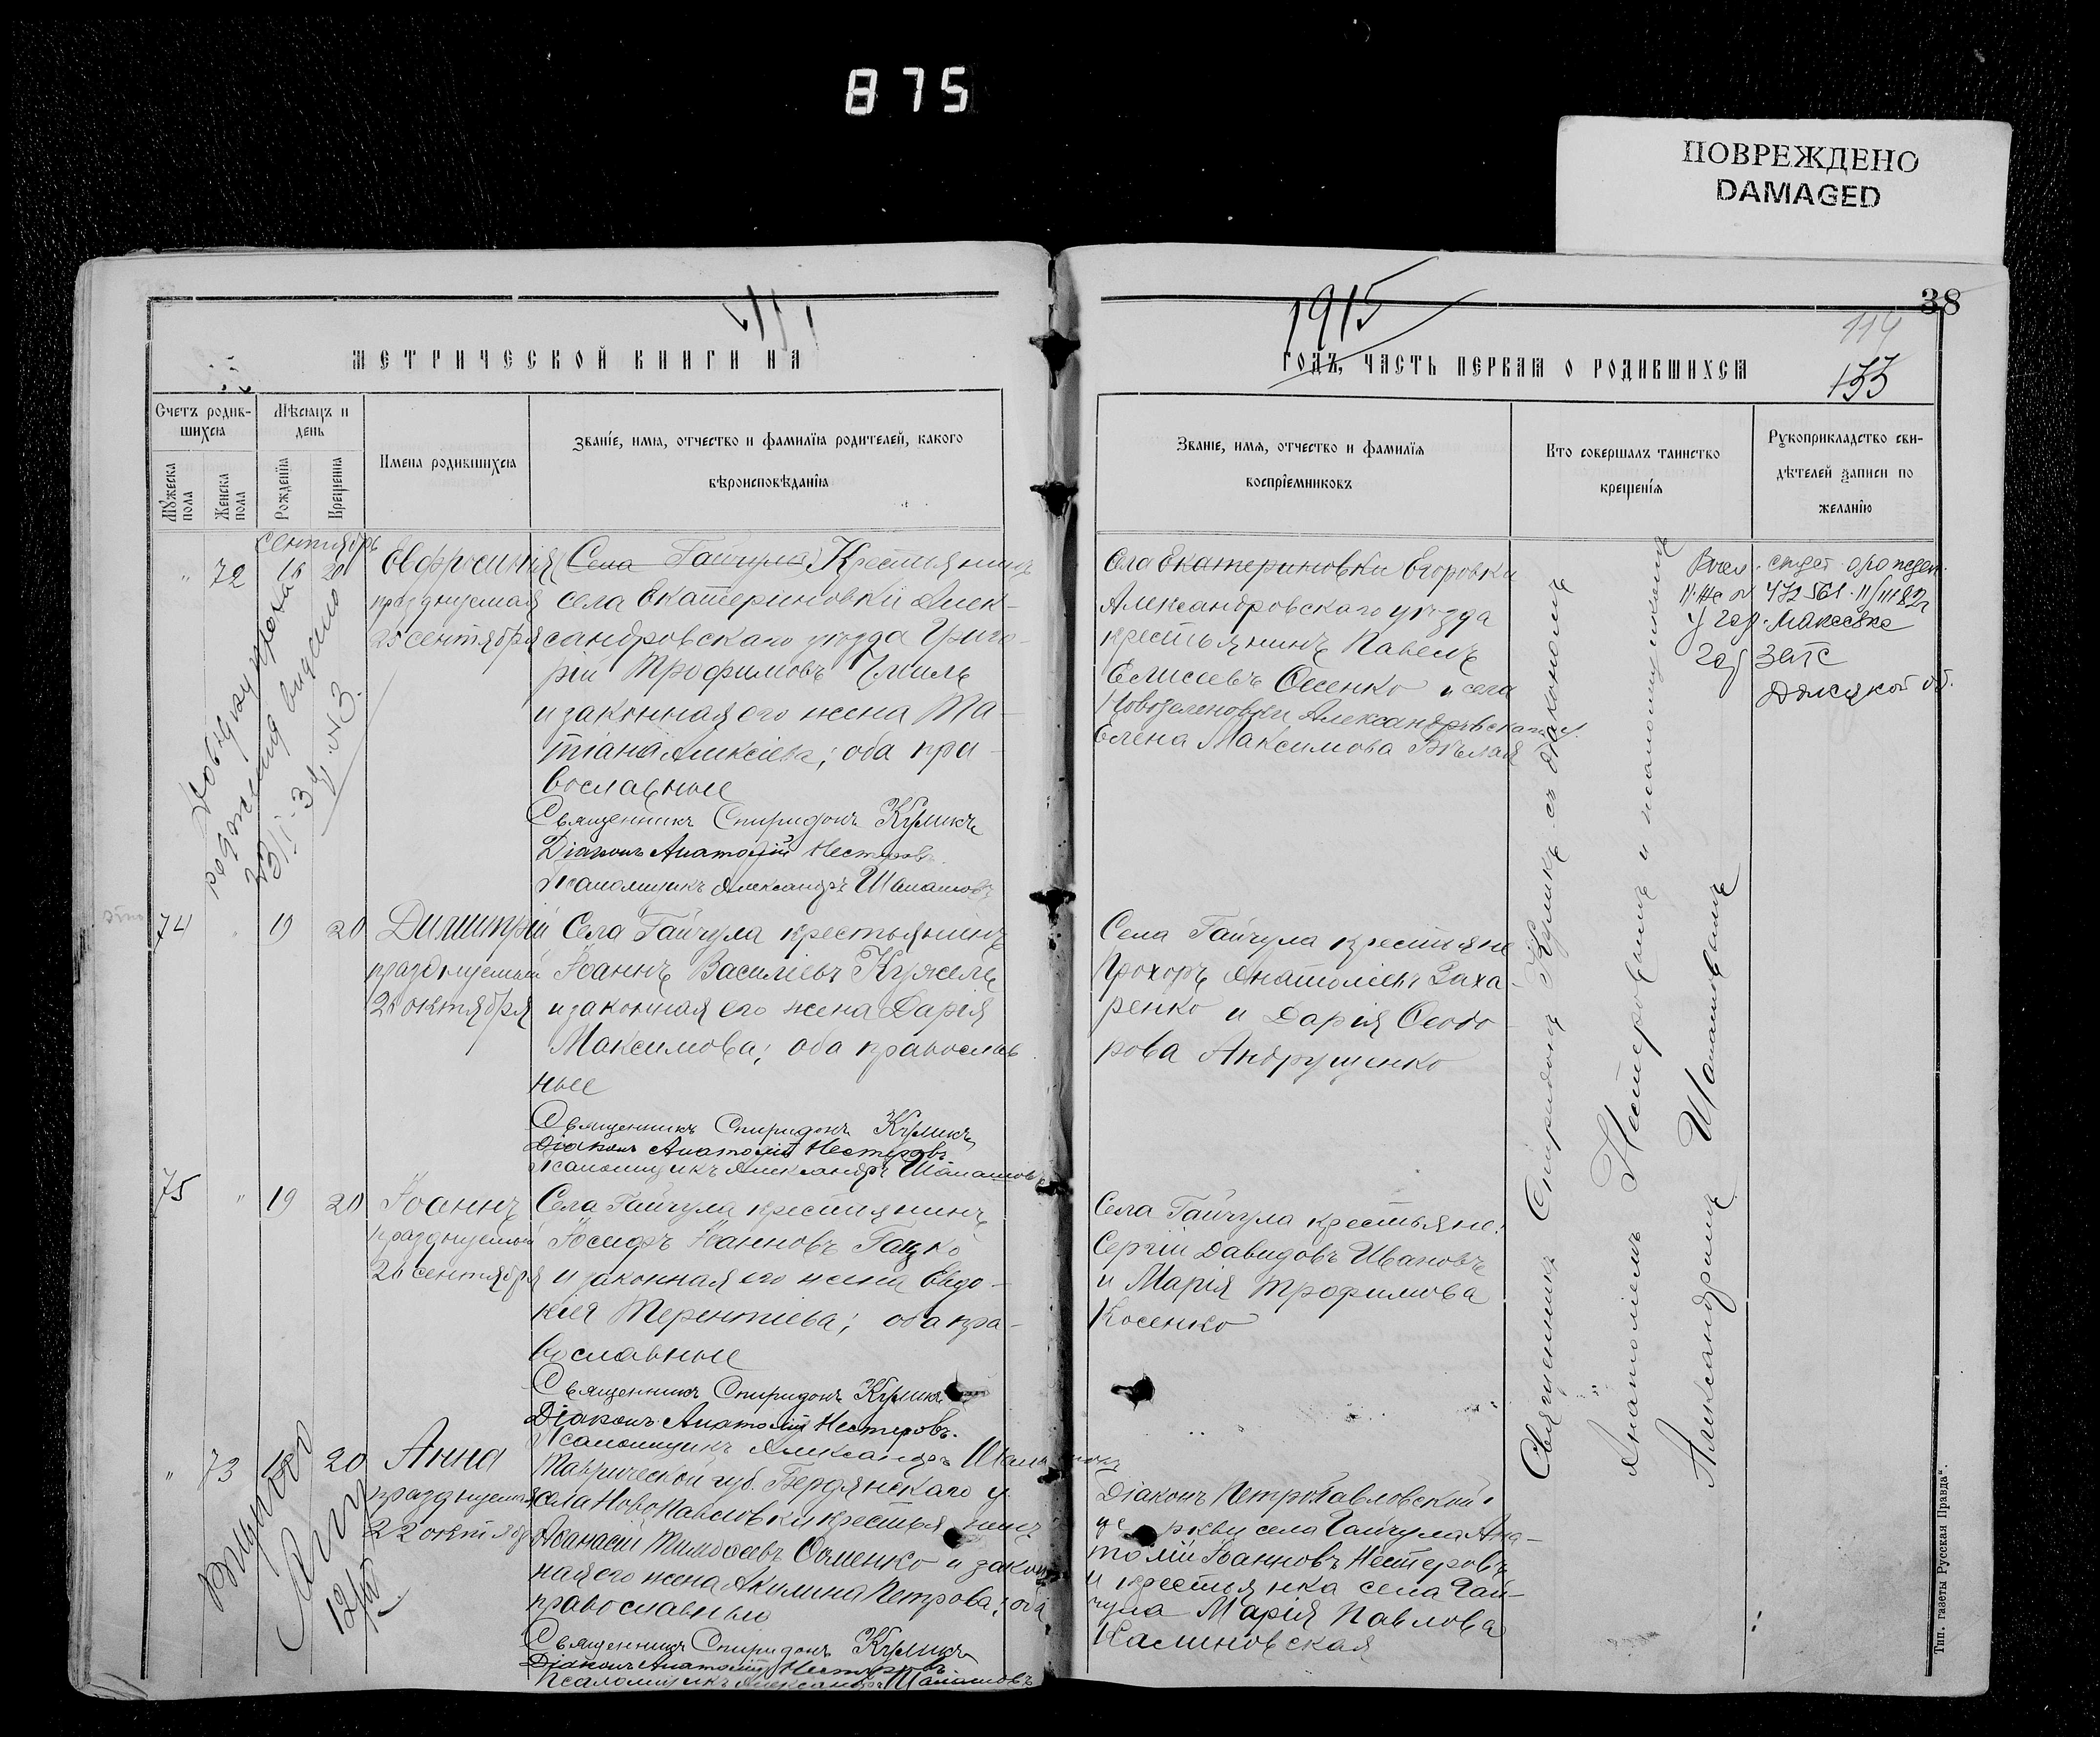 875
ПОВРЕЖДЕНО
DAMAGED
38
1915
114
133
МЕТРИЧЕСКОЙ КНИГИ НА
ГОДЪ, ЧАСТЬ ПЕРВАЯ О РОДИВШИХСЯ
Счетъ родив-
шихся
Мужеска пола
Женска пола
Мѣсяцъ и
день
Рожденія
Крещенія
Имена родившихся
Званіе, имя, отчество и фамилія родителей, какого
вѣроисповѣданія
Званіе, имя, отчество и фамилія
воспріемниковъ
Кто совершалъ таинство
крещенія
Рукоприкладство сви-
дѣтелей записи по
желанію
сентябрь
" 72 16 20
Евфросинія
празднуемая
25 сентября
Села Гайчула Крестьянинъ
села Екатериновки Алек-
сандровскаго уѣзда Григо-
рій Трофимовъ
и законная его жена Та-
тіана Алексіева; оба пра-
вославные
Священникъ Спиридонъ Куликъ
Діаконъ Анатолій Нестеровъ
Псаломщикъ Александръ Шапашовъ
Села Екатериновки Егоровки
Александровскаго уѣзда
крестьянинъ Павелъ
Елисеевъ Осенко и села
Новозеленовки Александровскаго у.
Елена Максимова Бѣлая
472561
у гор. Макеевке
загс
74 " 19 20
Димитрій
празднуемый
26 октября
Села Гайчула крестьянинъ
Іоаннъ Василіевъ Кужель
и законная его жена Дарія
Максимова; оба православ
ные
Священникъ Спиридонъ Куликъ
Діаконъ Анатолій Нестеровъ
Псаломщикъ Александръ Шапашовъ
Села Гайчула крестьяне
Прохоръ Анатоліевъ Заха-
ренко и Дарія Ѳеодо-
рова Андрущенко
75 " 19 20
Іоаннъ
празднуемый
26 сентября
Села Гайчула крестьянинъ
Іосифъ Іоанновъ Гацко
и законная его жена Евдо-
кія Терентіева; оба пра-
вославные
Священникъ Спиридонъ Куликъ
Діаконъ Анатолій Нестеровъ.
Псаломщикъ Александръ Шапашовъ
Села Гайчула крестьяне:
Сергій Давидовъ Ивановъ
и Марія Трофимова
Косенко
" 73 20
Анна
празднуемая
22 октября
Таврической губ. Бердянскаго у.
села Новопавловки крестьянинъ
Аѳанасій Тимоѳеевъ и закон
ная его жена Акилина Петрова; оба
православные
Священникъ Спиридонъ Куликъ
Діаконъ Анатолій Нестеровъ
Псаломщикъ Александръ Шапашовъ
Діаконъ Петропавловской
церкви села Гайчула Ана-
толій Іоанновъ Нестеровъ
и крестьянка села Гай-
чула Марія Павлова
Калиновская
Священникъ Спиридонъ Куликъ съ діакономъ
Анатоліемъ Нестеровымъ и псаломщикомъ
Александромъ Шапашовымъ
Тип. газеты Русская Правда".